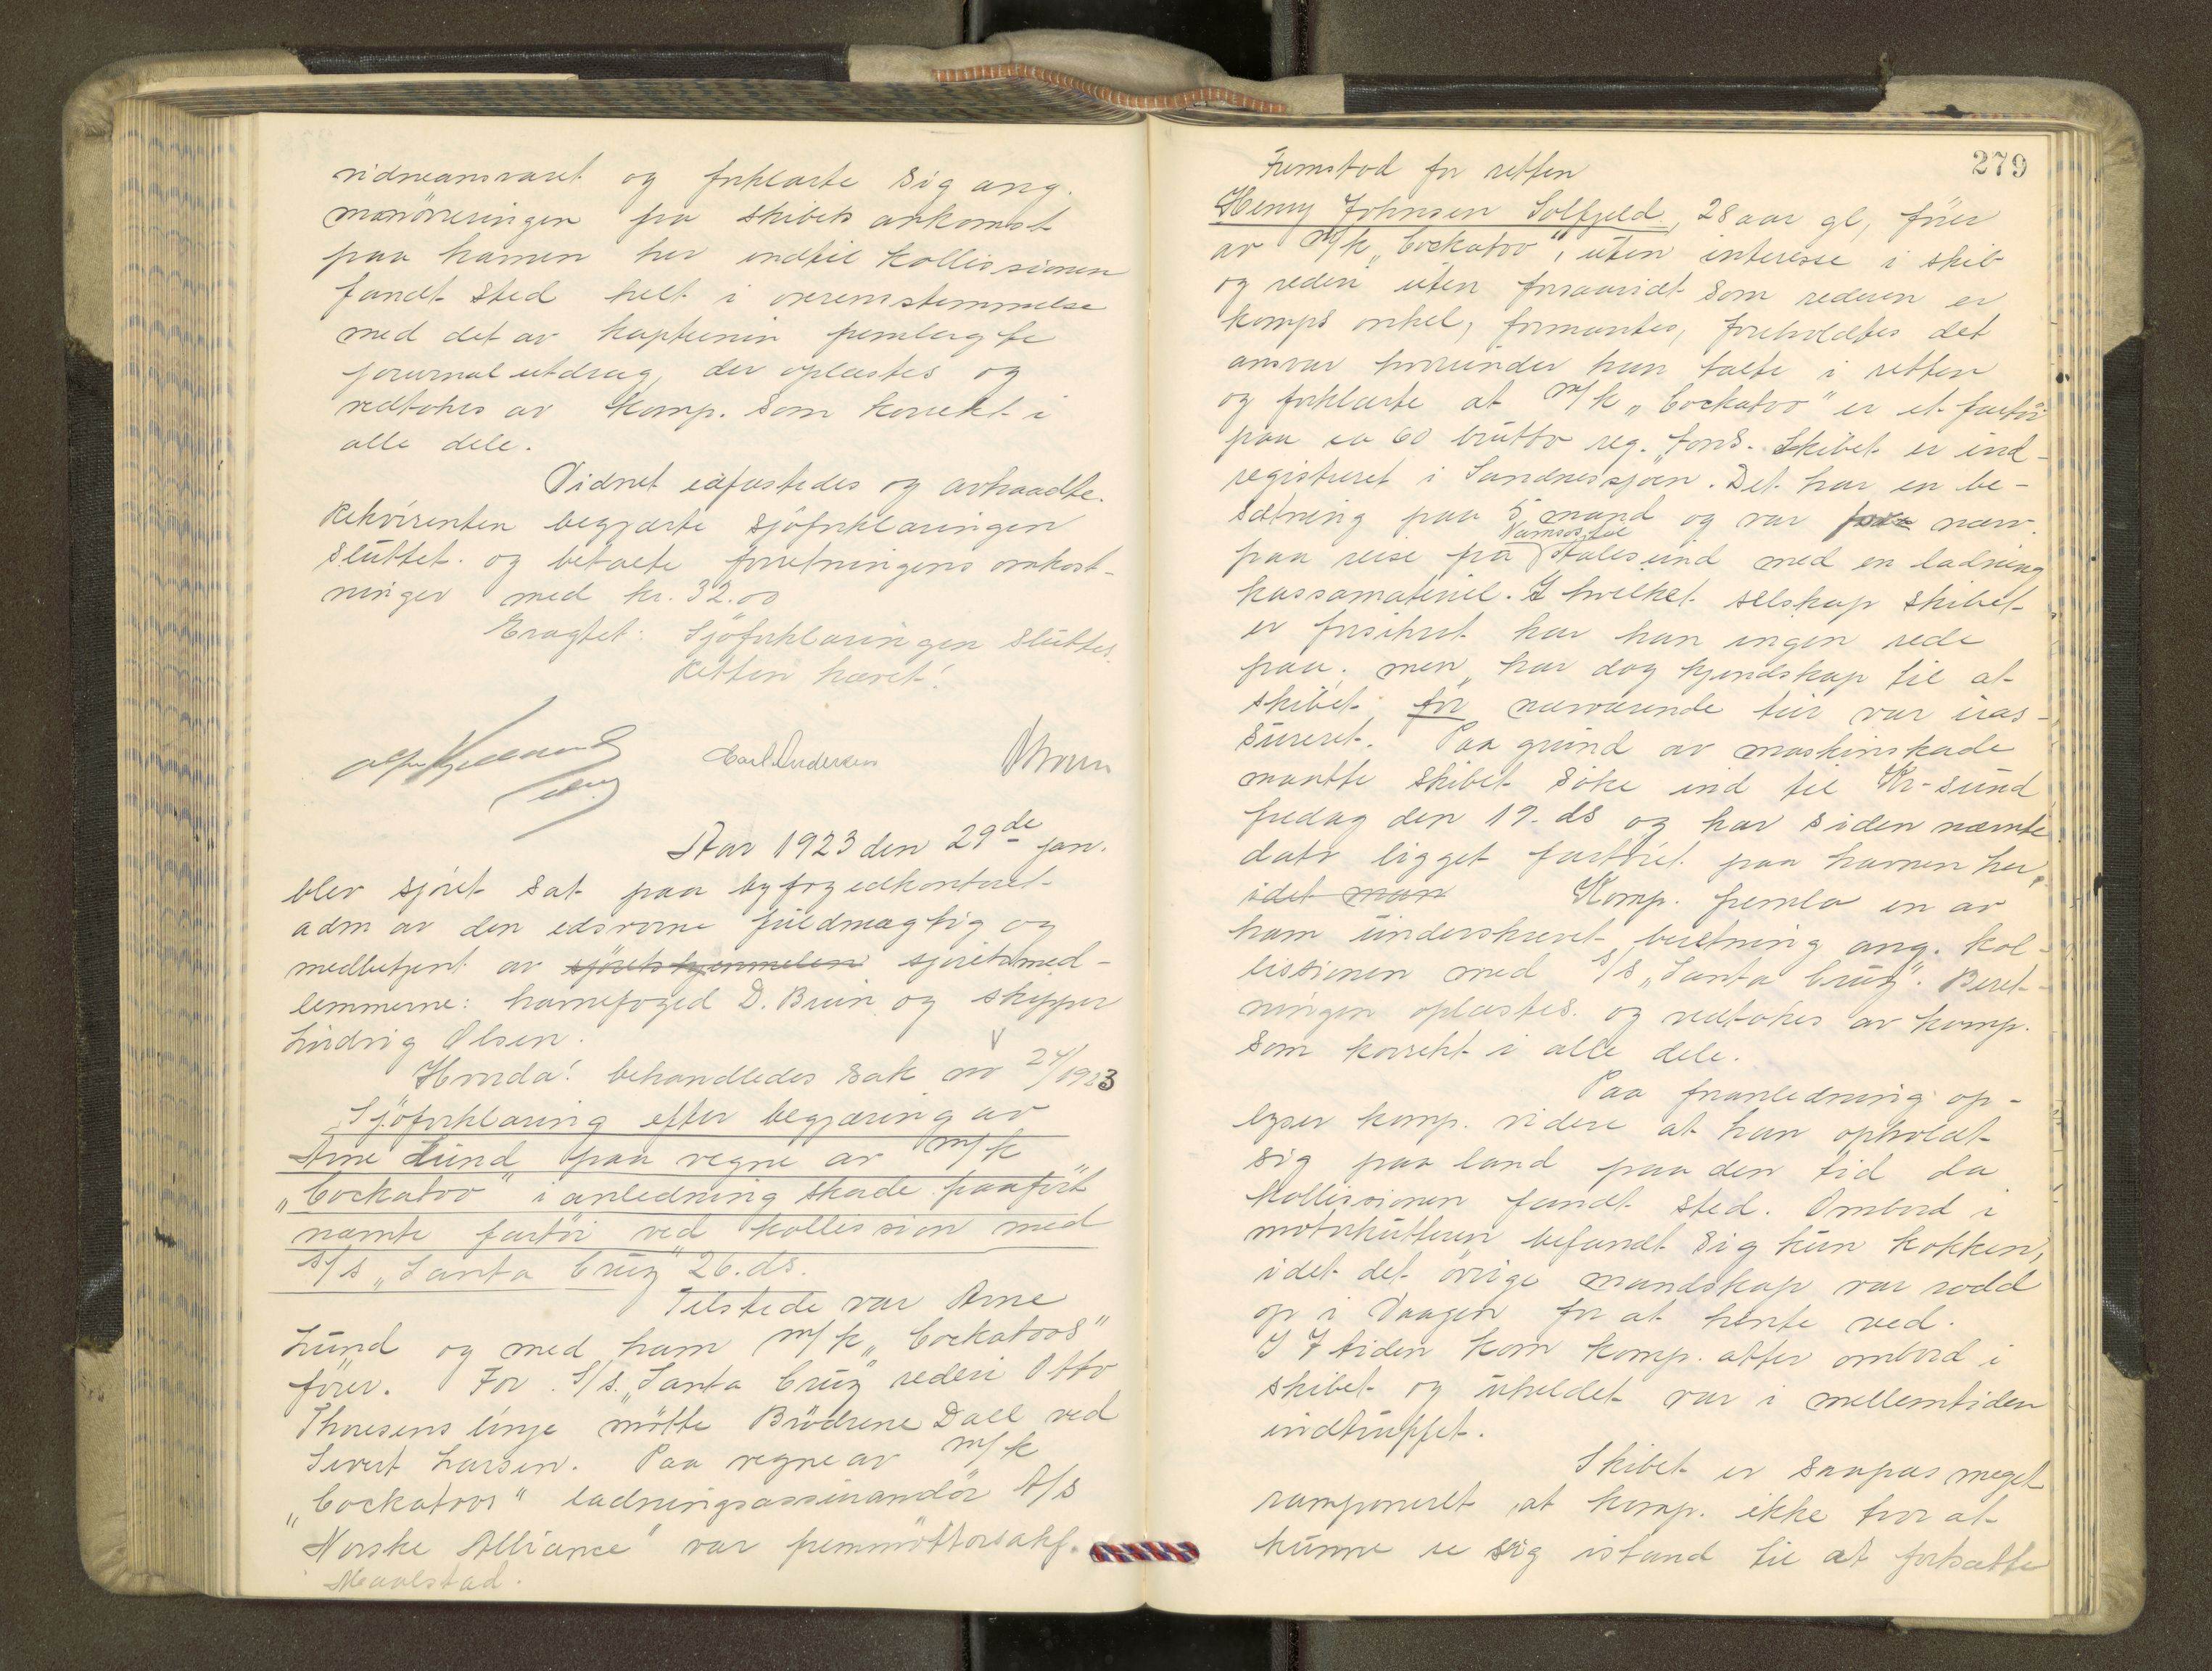 vidneansvaret og forklarte sig ang.
manövreringen fra skibets ankomst
paa havnen her indtil kollissionen
fandt sted helt i overenstemmelse
med det av kapteinin fremlagte
journalutdrag, der oplæstes og
vedtokes av Komp. som korrekt i
alle dele.
Vidnet edfæstedes og avhørte.
Rekvirenten begjærte sjöforklaringen
sluttet. og betalte forretningens omkost-
ninger med kr. 32.00
Eragtet: Sjöforklaringen sluttes.
Retten hævet!
Carl Andersen
DBruun
Aar 1923 den 29de jan.
blev sjöret sat paa byfogedkontoret
adm av den edsvorne fuldmægtig og
medbetjent av sjörets hjemmelen sjöretsmed-
lemmerne: havnefoged D. Bruun og skipper
Ludvig Olsen.
Hvorda! behandledes sak nr 24/1923
Sjöforklaring efter begjæring av
Arne Lund paa vegne av m/k
„Cockatoo" i anledning skade paafört
nævnte fartöi ved kollission med
s/s „Santa Cruz" 26. ds.
Tilstede var Arne
Lund og med ham m/k „Cockatoos"
förer. For S/s. „Santa Cruz" rederi Otto
Thoresens linje mötte Brödrene Dall ved
Sivert Larsen. Paa vegne av m/k
„Cockatoos" ladningsassurandör A/S
Norske Alliance" var fremmött orsakf.
Maalstad.
279
Fremstod for retten
Henry Johnsen Solfjeld, 28 aar gl, förer
av M/k „Cockatoo", uten interesse i skib
og rederi uten forsaavidt som rederen er
komps onkel, formantes, foreholdtes det
ansvar hvorunder han talte i retten
og forklarte at m/k „Cockatoo" er et fartöi
paa ca 60 brutto reg. tons. Skibet er ind-
registreret i Sandnessjöen. Det har en be-
sætning paa 5 mand og var nærv.
Namsos til
paa reise fra Aalesund med en ladning
kassamateriel. I hvilket selskap skibet
er forsikret har han ingen rede
paa, men har dog kjendskap til at
skibet for nærværende tur var uas-
sureret. Paa grund av maskinskade
maatte skibet söke ind til Kr-sund
fredag den 19. ds og har siden nævnte
dato ligget fortöiet paa havnen her,
idet man Komp. fremla en av
ham underskrevet beretning ang. kol-
lissionen med S/S „Santa Cruz". Beret-
ningen oplæstes. og vedtokes av komp.
som korrekt i alle dele.
Paa foranledning op-
lyser komp. videre at han opholdt
sig paa land paa den tid da
kollissionen fandt sted. Ombord i
motorkutteren befandt sig kun kokken,
idet det övrige mandskap var rodd
op i Vaagen for at hente ved.
I 7 tiden kom komp. atter ombord i
skibet og uheldet var i mellemtiden
indtruffet.
Skibet er saapas meget
ramponeret at komp. ikke tror at
kunne se sig istand til at fortsætte